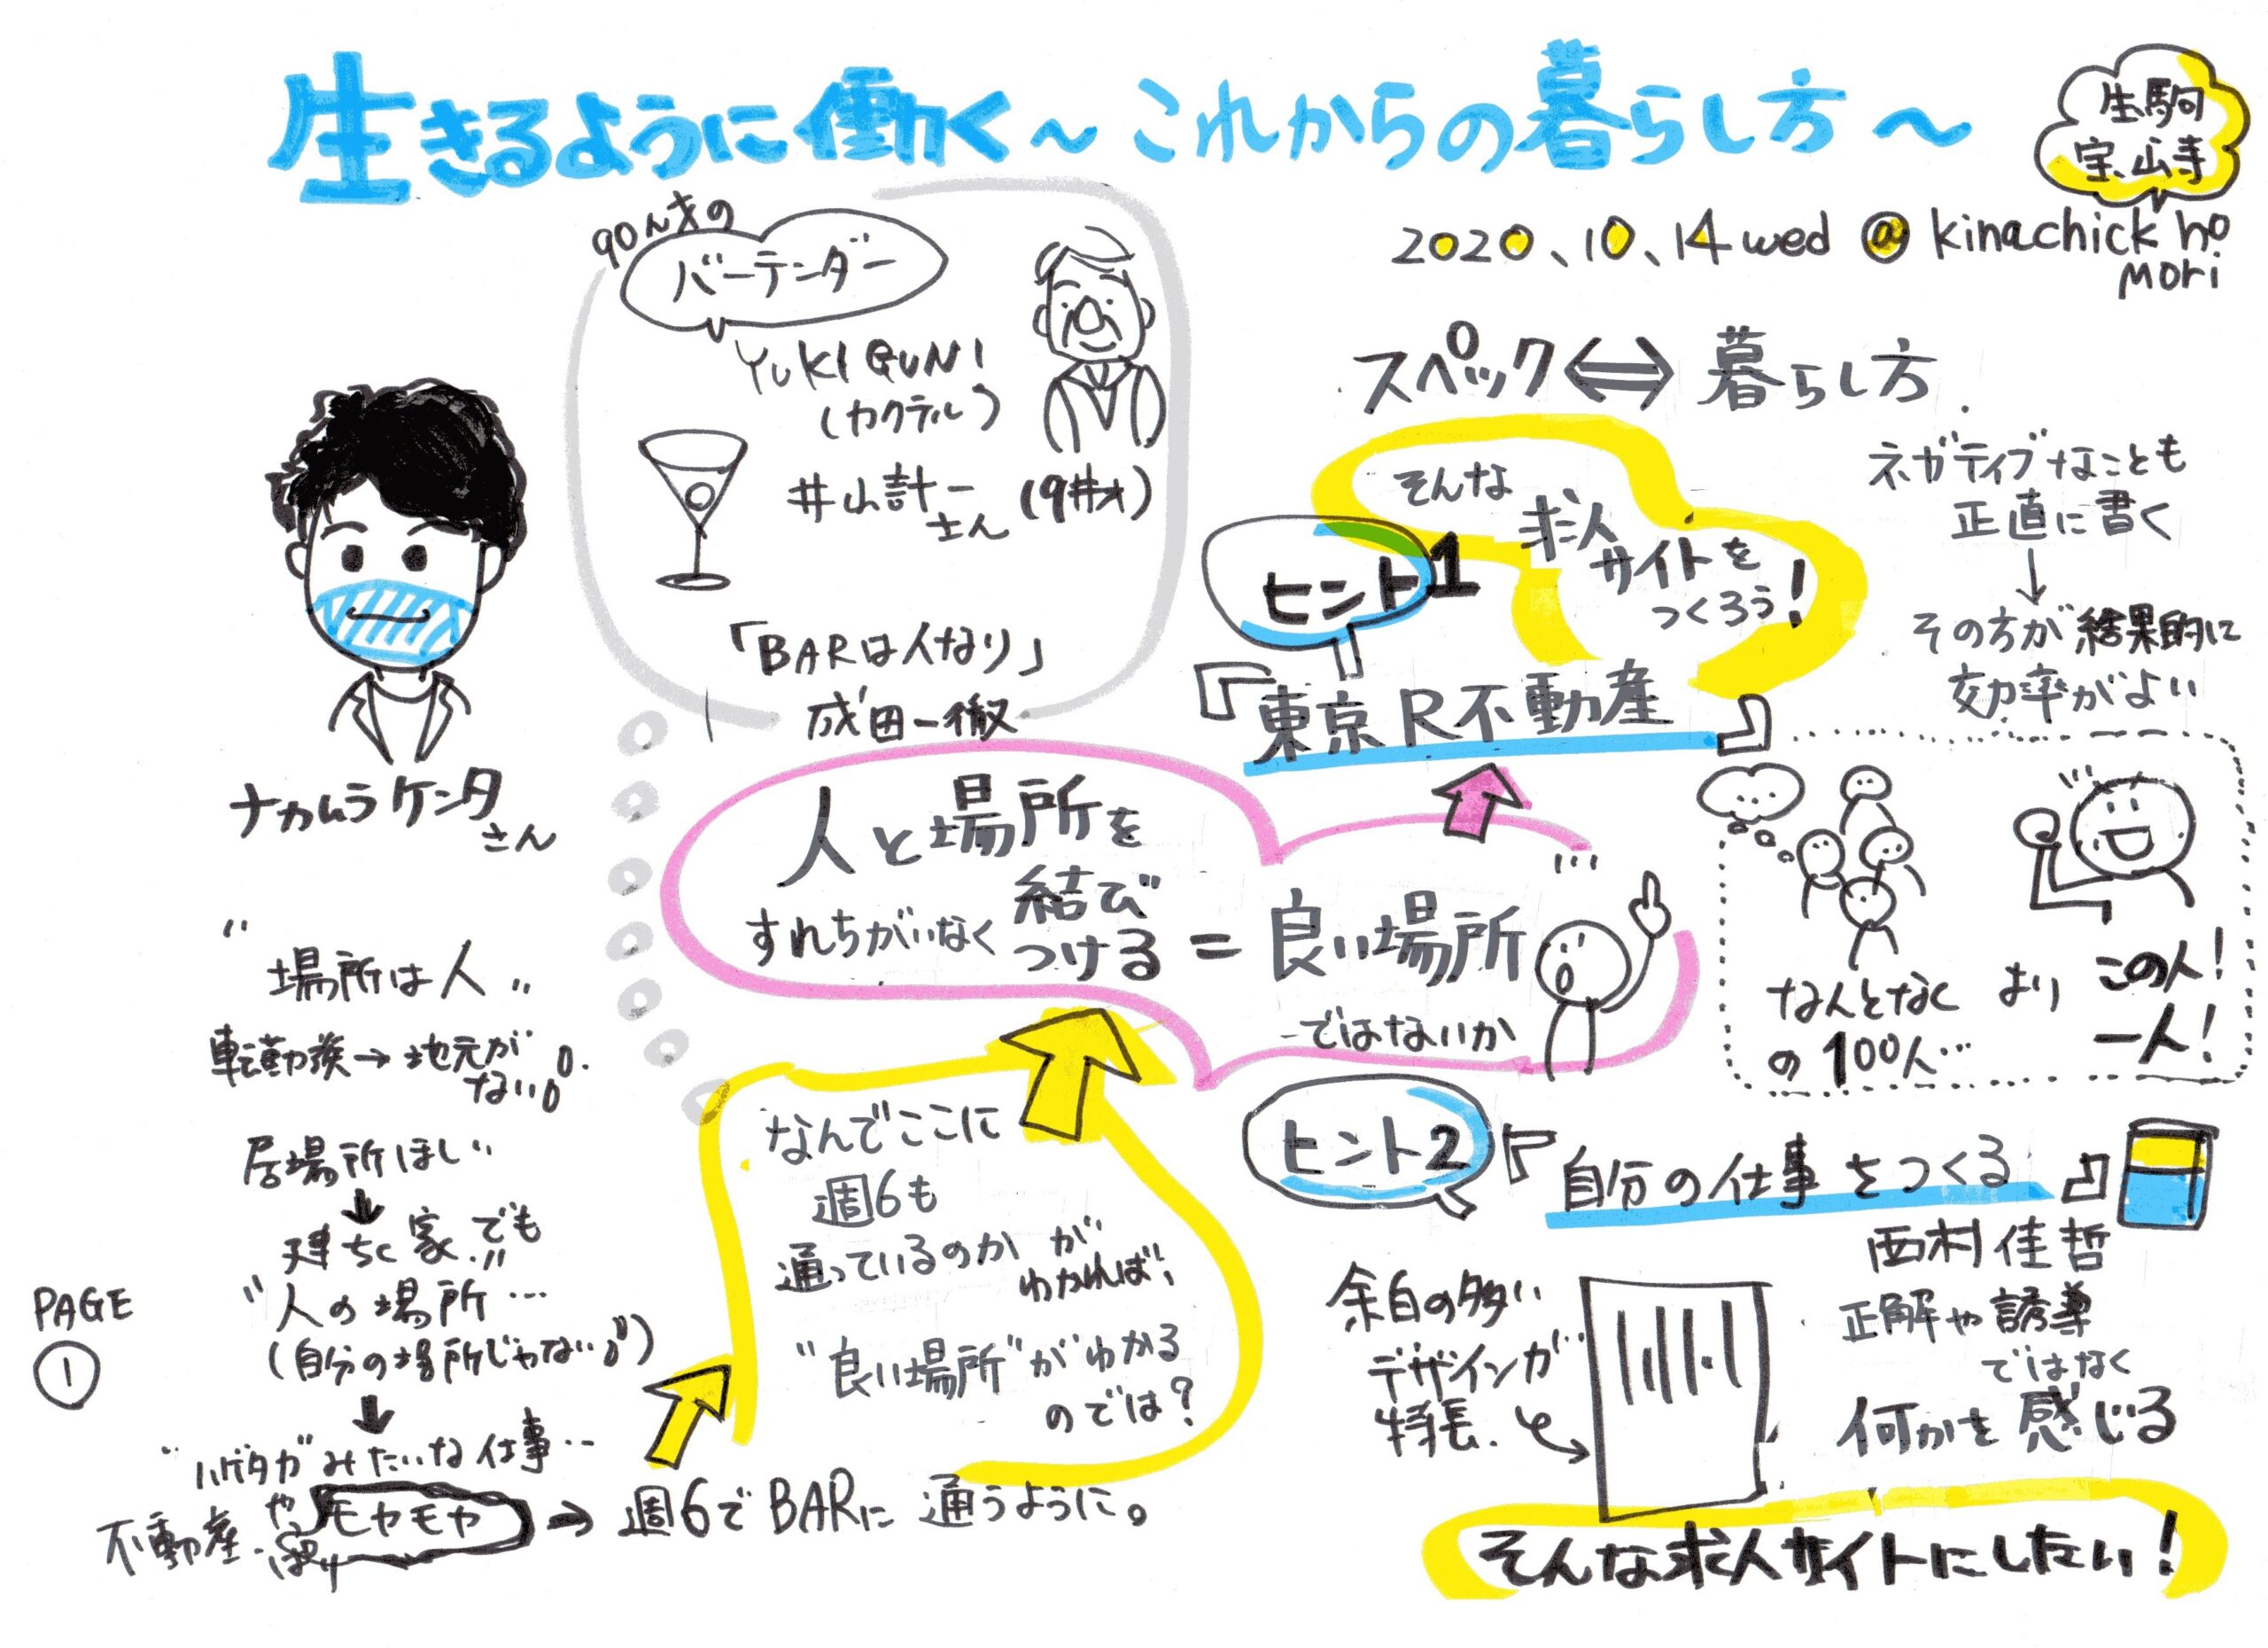 生きるように働く～これからの暮らし方～
生駒
宝山寺
2020、10、14 wed @ kinachick no
mori
90ん才の
バーテンダー
YUKIGUNI
(カクテル)
井山計一
さん
「BARは人なり」
成田一徹
ナカムラケンタ
さん
"場所は人"
転勤族→地元が
ない
居場所ほしい
↓
建ちく家.でも
"人の場所…
(自分の場所じゃない")
↓
"ハゲタカ"みたいな仕事…
不動産.
やっぱり
モヤモヤ
→週6でBARに通うように。
なんでここに
週6も
通っているのか が
わかれば、
"良い場所"がわかる
のでは?
人と場所を
すれちがいなく
結び
つける
=良い場所
ではないか
スペック⇔暮らし方
そんな
求人
サイトを
つくろう!
ヒント1
『東京R不動産』
ネガティブなことも
正直に書く
↓
その方が結果的に
効率がよい
なんとなく
の100人…
より
この人!
一人!
ヒント2
『自分の仕事をつくる』
西村佳哲
正解や誘導
ではなく
何かを感じる
余白の多い
デザインが
特長.
そんな求人サイトにしたい!
PAGE
1